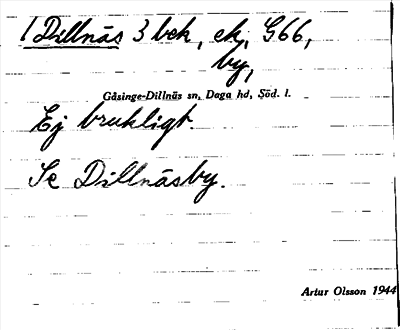 1 Dillnäs 3 bek, ek, G66,
by,
Gåsinge-Dillnäs sn, Daga hd, Söd. l.
Ej brukligt.
Se Dillnäsby.
Artur Olsson 1944